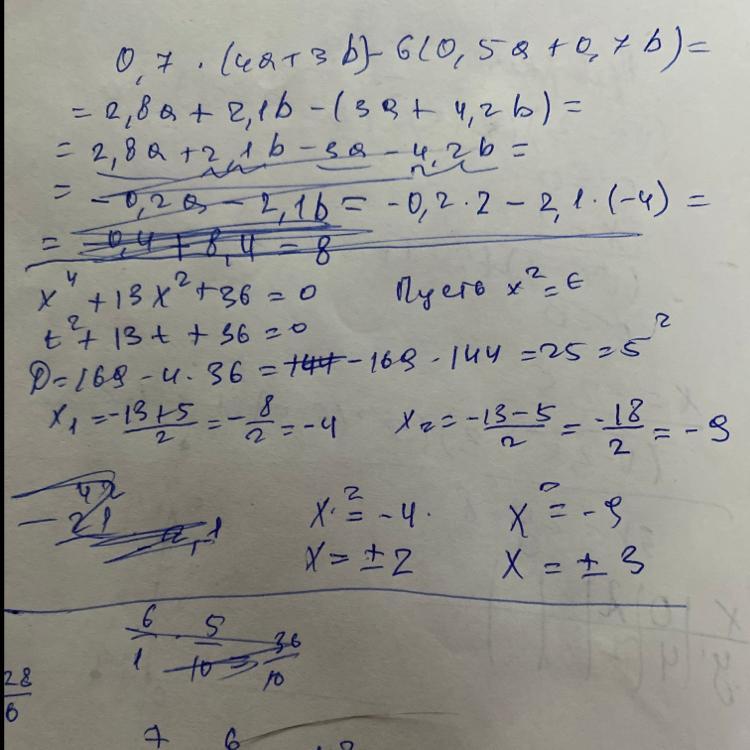 0,7 · (4a+3b)-6(0,5a+0,7b)=
= 2,8a + 2,1b - (3a + 4,2b) =
= 2,8a + 2,1b - 3a - 4,2b =
= -0,2a - 2,1b = -0,2·2 - 2,1·(-4) =
= -0,4 + 8,4 = 8
x⁴ + 13x² + 36 = 0 Пусть x² = t
t² + 13t + 36 = 0
D = 169 - 4·36 = 144 - 169 - 144 = 25 = 5²
x₁ = -13+5/2 = -8/2 = -4 x₂ = -13-5/2 = -18/2 = -9
42
- 21
2,1
x² = -4 x² = -9
x = ±2 x = ±3
6/1 · 5/10 = 36/10
28/6
7 6